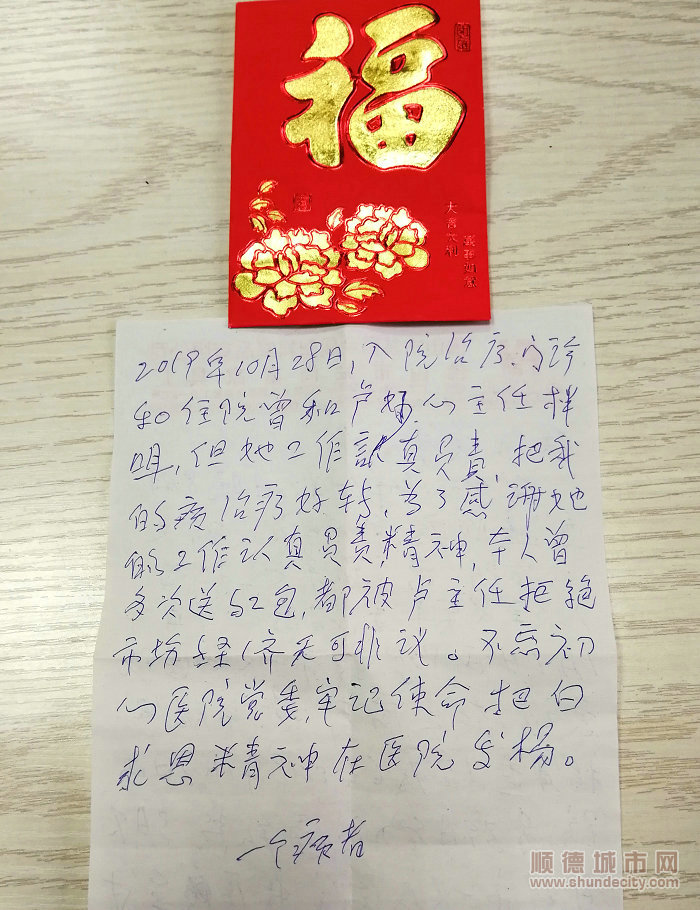 福
大吉大利
2019年10月28日,入院治疗.门诊
和住院曾和卢 心主任拌
咀,但她工作认真员责,把我
的病治疗好转,为了感谢她
的工作认真员责,精神,本人曾
多次送红包,都被卢主任拒绝
市场经济无可非议。不忘初
心医院党委,牢记使命把白
求恩精神在医院发杨。
一个病者
顺德城市网
www.shundecity.com